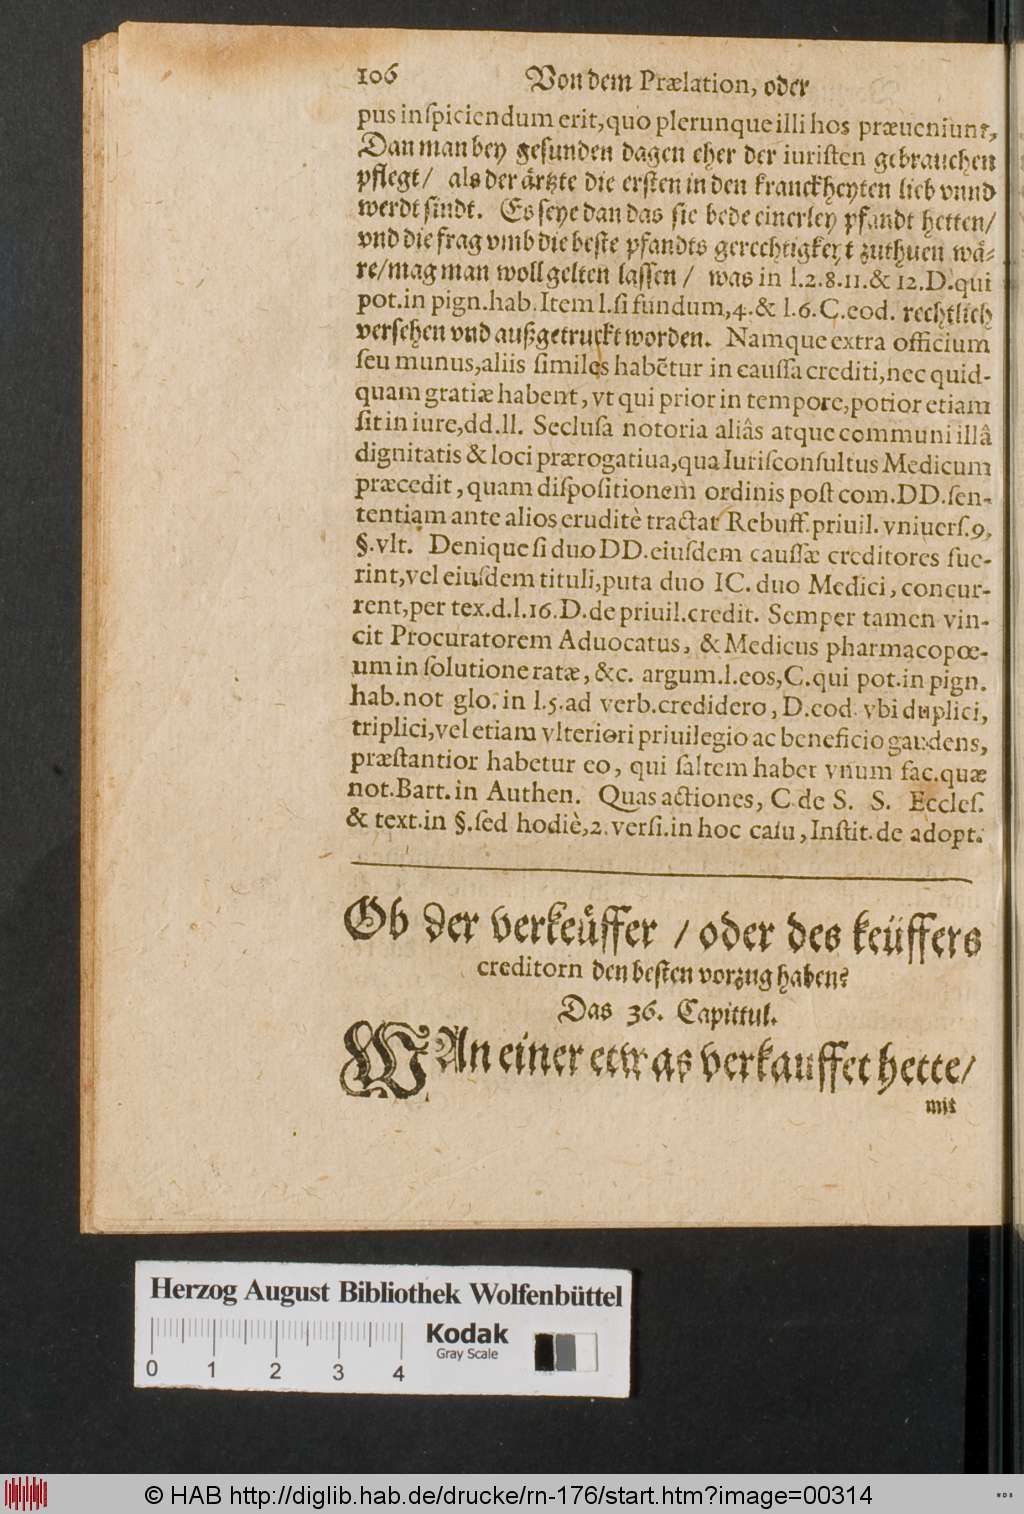 106 Von dem Prælation, oder
pus inſpiciendum erit, quo plerunque illi hos præueniunt,
Dan man bey geſunden dagen eher der iuriſten gebrauchen
pflegt/ als der ärtzte die erſten in den kranckheyten lieb vnnd
werdt ſindt. Es ſeye dan das ſie bede einerley pfandt hetten/
vnd die frag vmb die beſte pfandts gerechtigkeyt zuthuen wä-
re/ mag man woll gelten laſſen/ was in l.2.8.11.& 12.D.qui
pot.in pign.hab.Item l.ſi fundum,4.& l.6.C.eod. rechtlich
verſehen vnd außgetruckt worden. Namque extra officium
ſeu munus, aliis ſimiles habētur in cauſſa crediti, nec quid-
quam gratiæ habent, vt qui prior in tempore, potior etiam
ſit in iure, dd.ll. Secluſa notoria aliâs atque communi illâ
dignitatis & loci prærogatiua, qua Iuriſconſultus Medicum
præcedit, quam diſpoſitionem ordinis poſt com.DD.ſen-
tentiam ante alios eruditè tractat Rebuff.priuil.vniuerſ.9.
§.vlt. Denique ſi duo DD.eiuſdem cauſſæ creditores fue-
rint, vel eiuſdem tituli, puta duo IC. duo Medici, concur-
rent, per tex.d.l.16.D.de priuil.credit. Semper tamen vin-
cit Procuratorem Aduocatus, & Medicus pharmacopœ-
um in ſolutione ratæ, &c. argum.l.eos,C.qui pot.in pign.
hab.not glo. in l.5.ad verb.credidero, D.eod. vbi duplici,
triplici, vel etiam vlteriori priuilegio ac beneficio gaudens,
præſtantior habetur eo, qui ſaltem habet vnum fac.quæ
not.Bart.in Authen. Quas actiones, C de S. S. Eccleſ.
& text.in §.ſed hodiè,2.verſi.in hoc caſu, Inſtit.de adopt.
Ob der verkeüffer / oder des keüffers
creditorn den beſten vorzug haben?
Das 36. Capittul.
WAn einer etwas verkauffet hette/
mit
Herzog August Bibliothek Wolfenbüttel
Kodak
Gray Scale
0 1 2 3 4
© HAB http://diglib.hab.de/drucke/rn-176/start.htm?image=00314